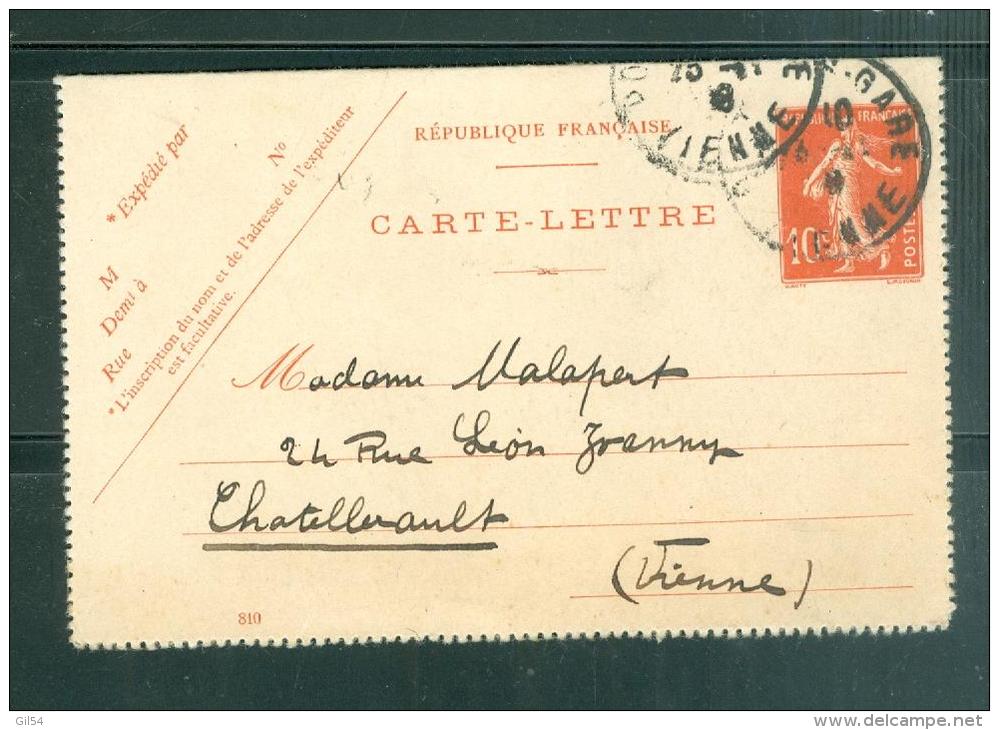 * Expédité par
M
Demt à
Rue
N°
* L'inscription du nom et de l'adresse de l'expéditeur
est facultative.
RÉPUBLIQUE FRANÇAISE
CARTE-LETTRE
GARE
VIENNE
VIENNE
RÉPUBLIQUE FRANÇAISE
10
POSTES
Madame Malapert
24 Rue Léon
Chatellerault
(Vienne)
810
Gil54
www.delcampe.net